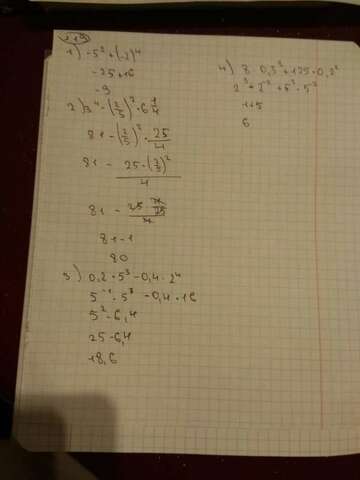 119
1) -5² + (-2)⁴
-25+16
-9
2) 3⁴ - (2/5)² · 6 1/4
81 - (2/5)² · 25/4
81 - 25 · (2/5)² / 4
81 -
81-1
80
3) 0,2 · 5³ - 0,4 · 2⁴
5⁻¹ · 5³ - 0,4 · 16
5² - 6,4
25 - 6,4
18,6
4) 8 · 0,5³ + 125 · 0,2²
2³ · 2⁻³ + 5³ · 5⁻²
1+5
6